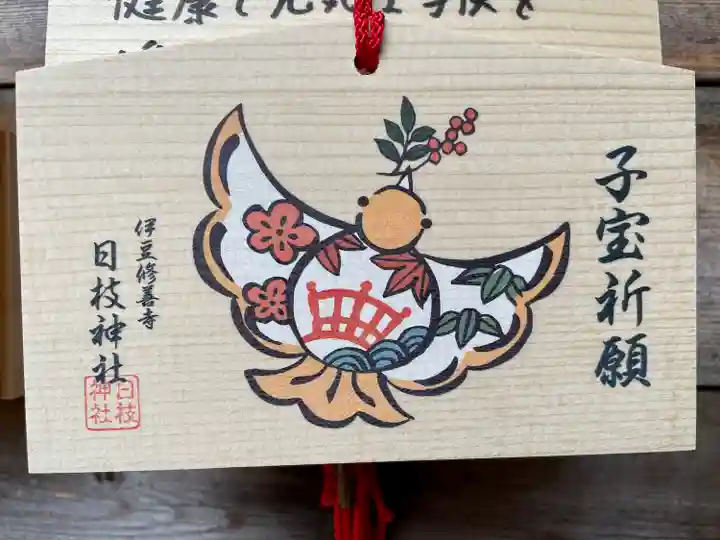 健康で元気に学校を
子宝祈願
伊豆修善寺
日枝神社
日枝
神社